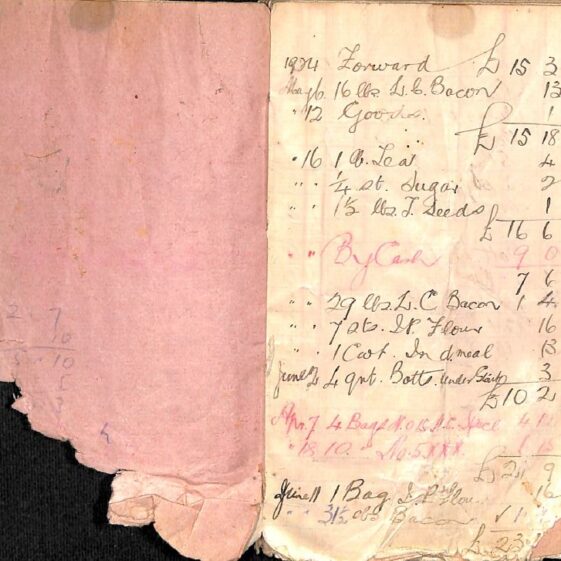 2 7
10
5 10
1924 Forward £ 15 3
May 6 16 lbs L.C. Bacon 13
" 12 Goods. 1
£ 15 18
" 16 1 lb. Tea 4
" " ¼ st. Sugar 2
" " 1½ lbs T. Seeds 1
£ 16 6
" " By Cash 9 0
7 6
" " 29 lbs L.C Bacon 1 4
" " 7 sts. I.P. Flour 16
" " 1 Cwt. Ind. meal 13
June 4 qnt. Botts. 3
£ 10 2
Apr. 7 4 Bags
" 18 10 " No. 5 XXX
£ 21 9
June 11 1 Bag I.P. Flour 16
" " 31½ lbs Bacon √ 1
£ 23